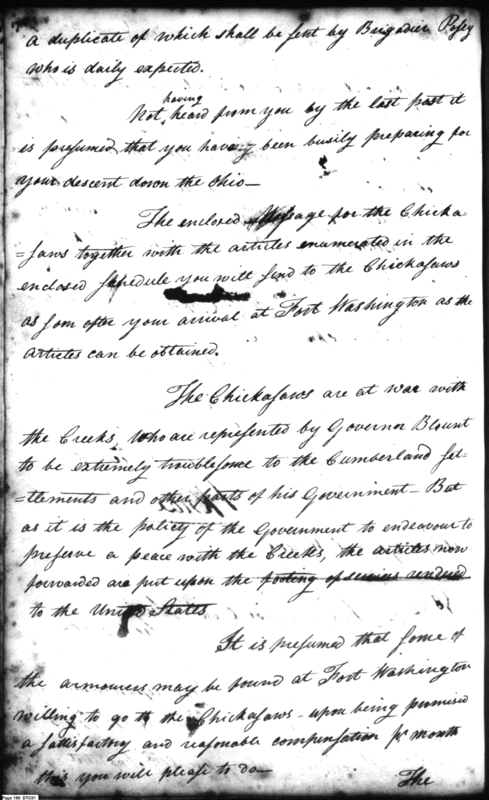 a duplicate of which shall be sent by Brigadier Posey
who is daily expected.
Not having heard from you by the last post it
is presumed that you have been busily preparing for
your descent down the Ohio—
The enclosed Message for the Chicka=
=saws together with the articles enumerated in the
enclosed schedule you will send to the Chickasaws
as soon after your arrival at Fort Washington as the
articles can be obtained.
The Chickasaws are at war with
the Creeks, who are represented by Governor Blount
to be extremely troublesome to the Cumberland Set=
=tlements and other parts of his Government — But
as it is the policy of the Government to endeavour to
preserve a peace with the Creeks, the articles now
forwarded are put upon the footing of services rendered
to the United States
It is presumed that some of
the armourers may be found at Fort Washington
willing to go to the Chickasaws — upon being promised
a satisfactory and reasonable compensation pr month
this you will please to do—
The
Page 186 DTC01